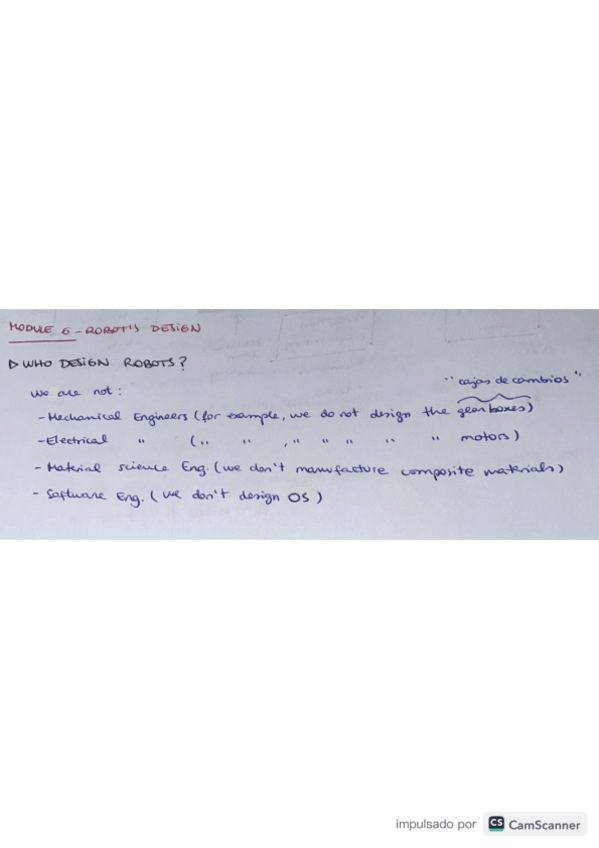 MODULE 6 - ROBOT'S DESIGN
▷ WHO DESIGN ROBOTS?
"cajas de cambios"
We are not:
- Mechanical Engineers (for example, we do not design the gear boxes)
- Electrical " (" " , " " " " " motors)
- Material science Eng. (we don't manufacture composite materials)
- Software Eng. (we don't design OS)
impulsado por CS CamScanner